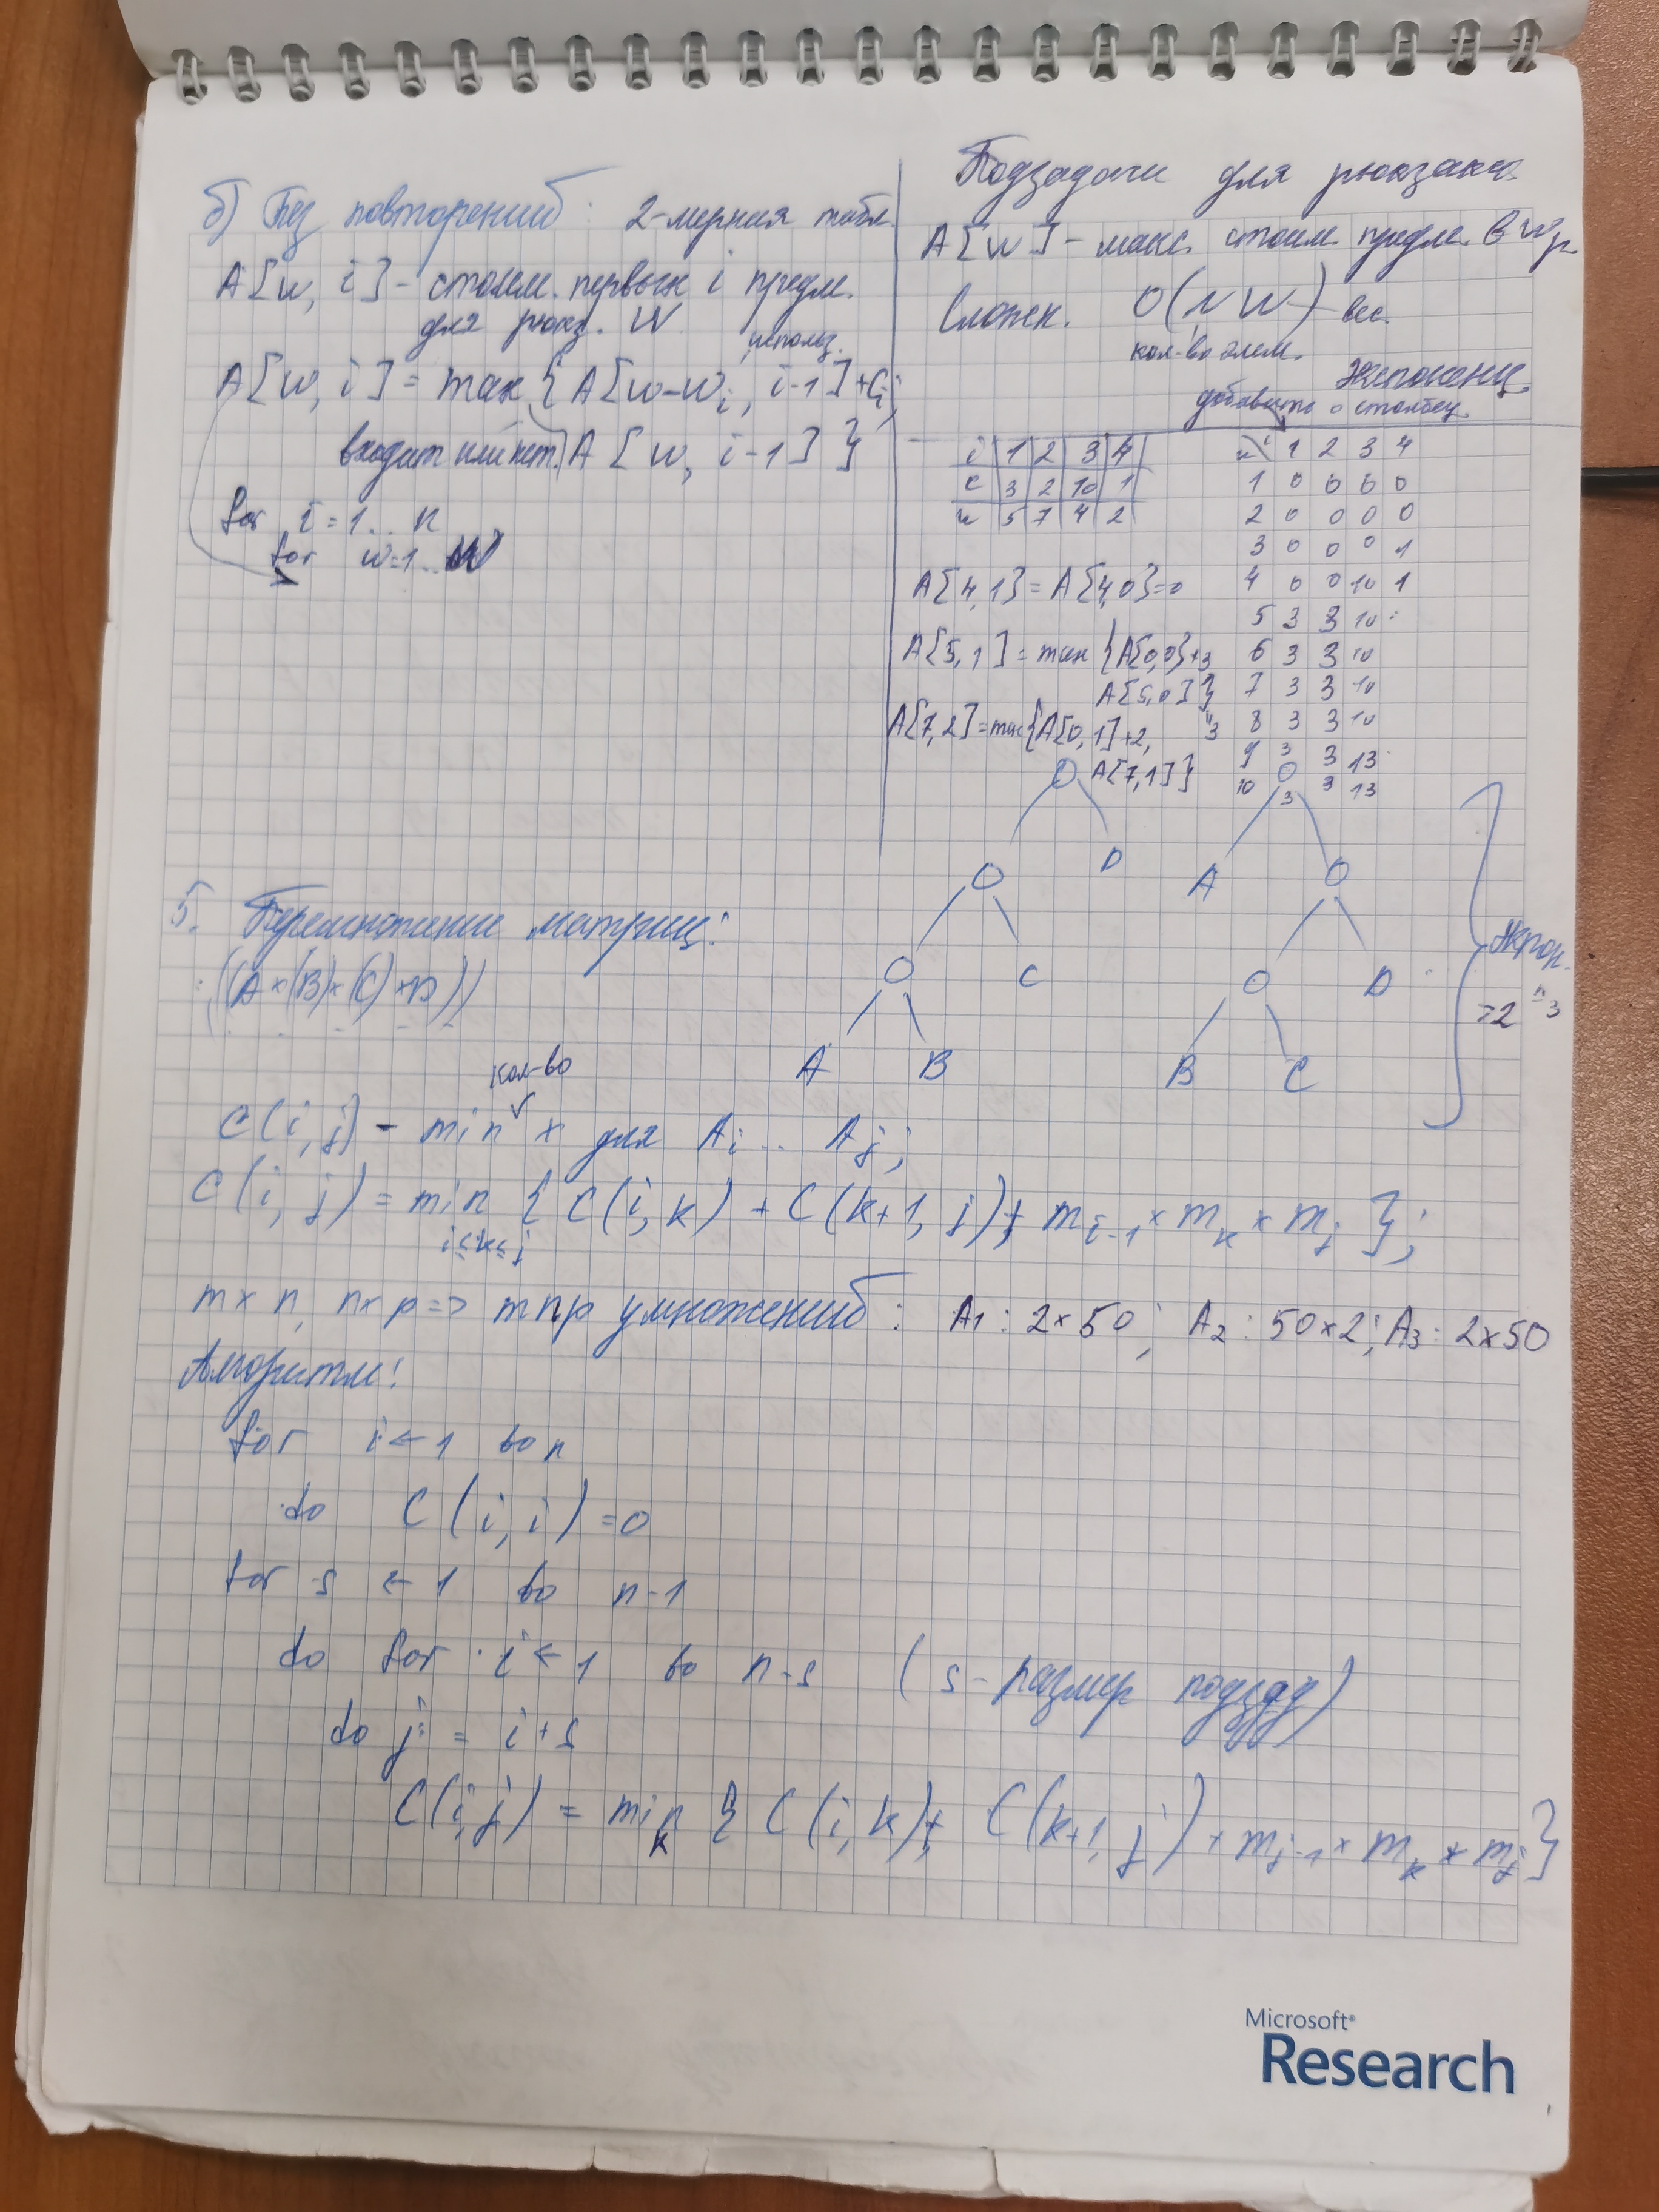 б) Без повторений: 2-мерная табл.
A[w, i] - стоим. первых i предм.
для рюкз. W
использ.
A[w, i] = max {A[w-wi, i-1]+ci,
входит или нет. A[w, i-1]}
for i=1..n
for w=1..W
Подзадачи для рюкзака.
A[w] - макс. стоим. предм. в
Сложн. O(NW) - вес.
кол-во элем.
Экспоненц.
добавить 0 столбец.
i 1 2 3 4
c 3 2 10 1
w 5 7 4 2
A[4,1] = A[4,0]=0
A[5,1] = max {A[0,0]+3
A[5,0]}
"3
A[7,2]=max{A[0,1]+2,
A[7,1]}
w i 1 2 3 4
1 0 0 0 0
2 0 0 0 0
3 0 0 0 1
4 0 0 10 1
5 3 3 10
6 3 3 10
7 3 3 10
8 3 3 10
9 3 3 13
10 3 3 13
D
C
A B
A
D
B C
Экпон.
>2 n/3
5. Перемножение матриц:
((A×(B)×(C)×D))
кол-во
C(i,j) - min × для Ai .. Aj;
C(i, j) = min {C(i,k) + C(k+1, j) + mi-1 × mk × mj};
i≤k≤j
m×n, n×p => mnp умножений: A1: 2×50; A2: 50×2; A3: 2×50
Алгоритм:
for i ← 1 to n
do C(i,i) = 0
for s ← 1 to n-1
do for i ← 1 to n-s (s - размер подзад)
do j = i+s
C(i,j) = min {C(i,k) + C(k+1, j) + mj-1 × mk × mj}
k
Microsoft®
Research